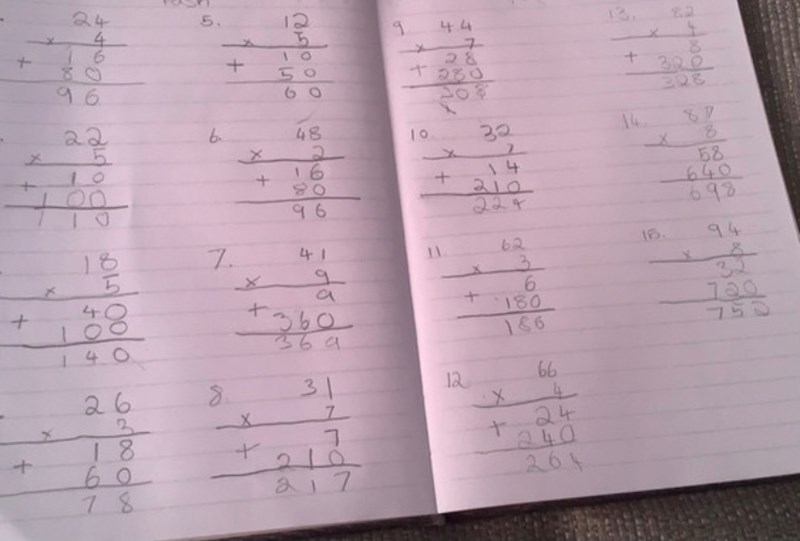 24
x 4
+ 16
80
96
22
x 5
+ 10
100
110
18
x 5
+ 40
100
140
26
x 3
+ 18
60
78
5. 12
x 5
+ 10
50
60
6. 48
x 2
+ 16
80
96
7. 41
x 9
+ 9
360
369
8. 31
x 7
+ 7
210
217
9 44
x 7
+ 28
280
208
10. 32
x 7
+ 14
210
224
11. 62
x 3
+ 6
180
186
12 66
x 4
+ 24
240
264
13. 82
x 4
+ 8
320
328
14. 87
x 8
58
640
698
15. 94
x 8
32
720
752